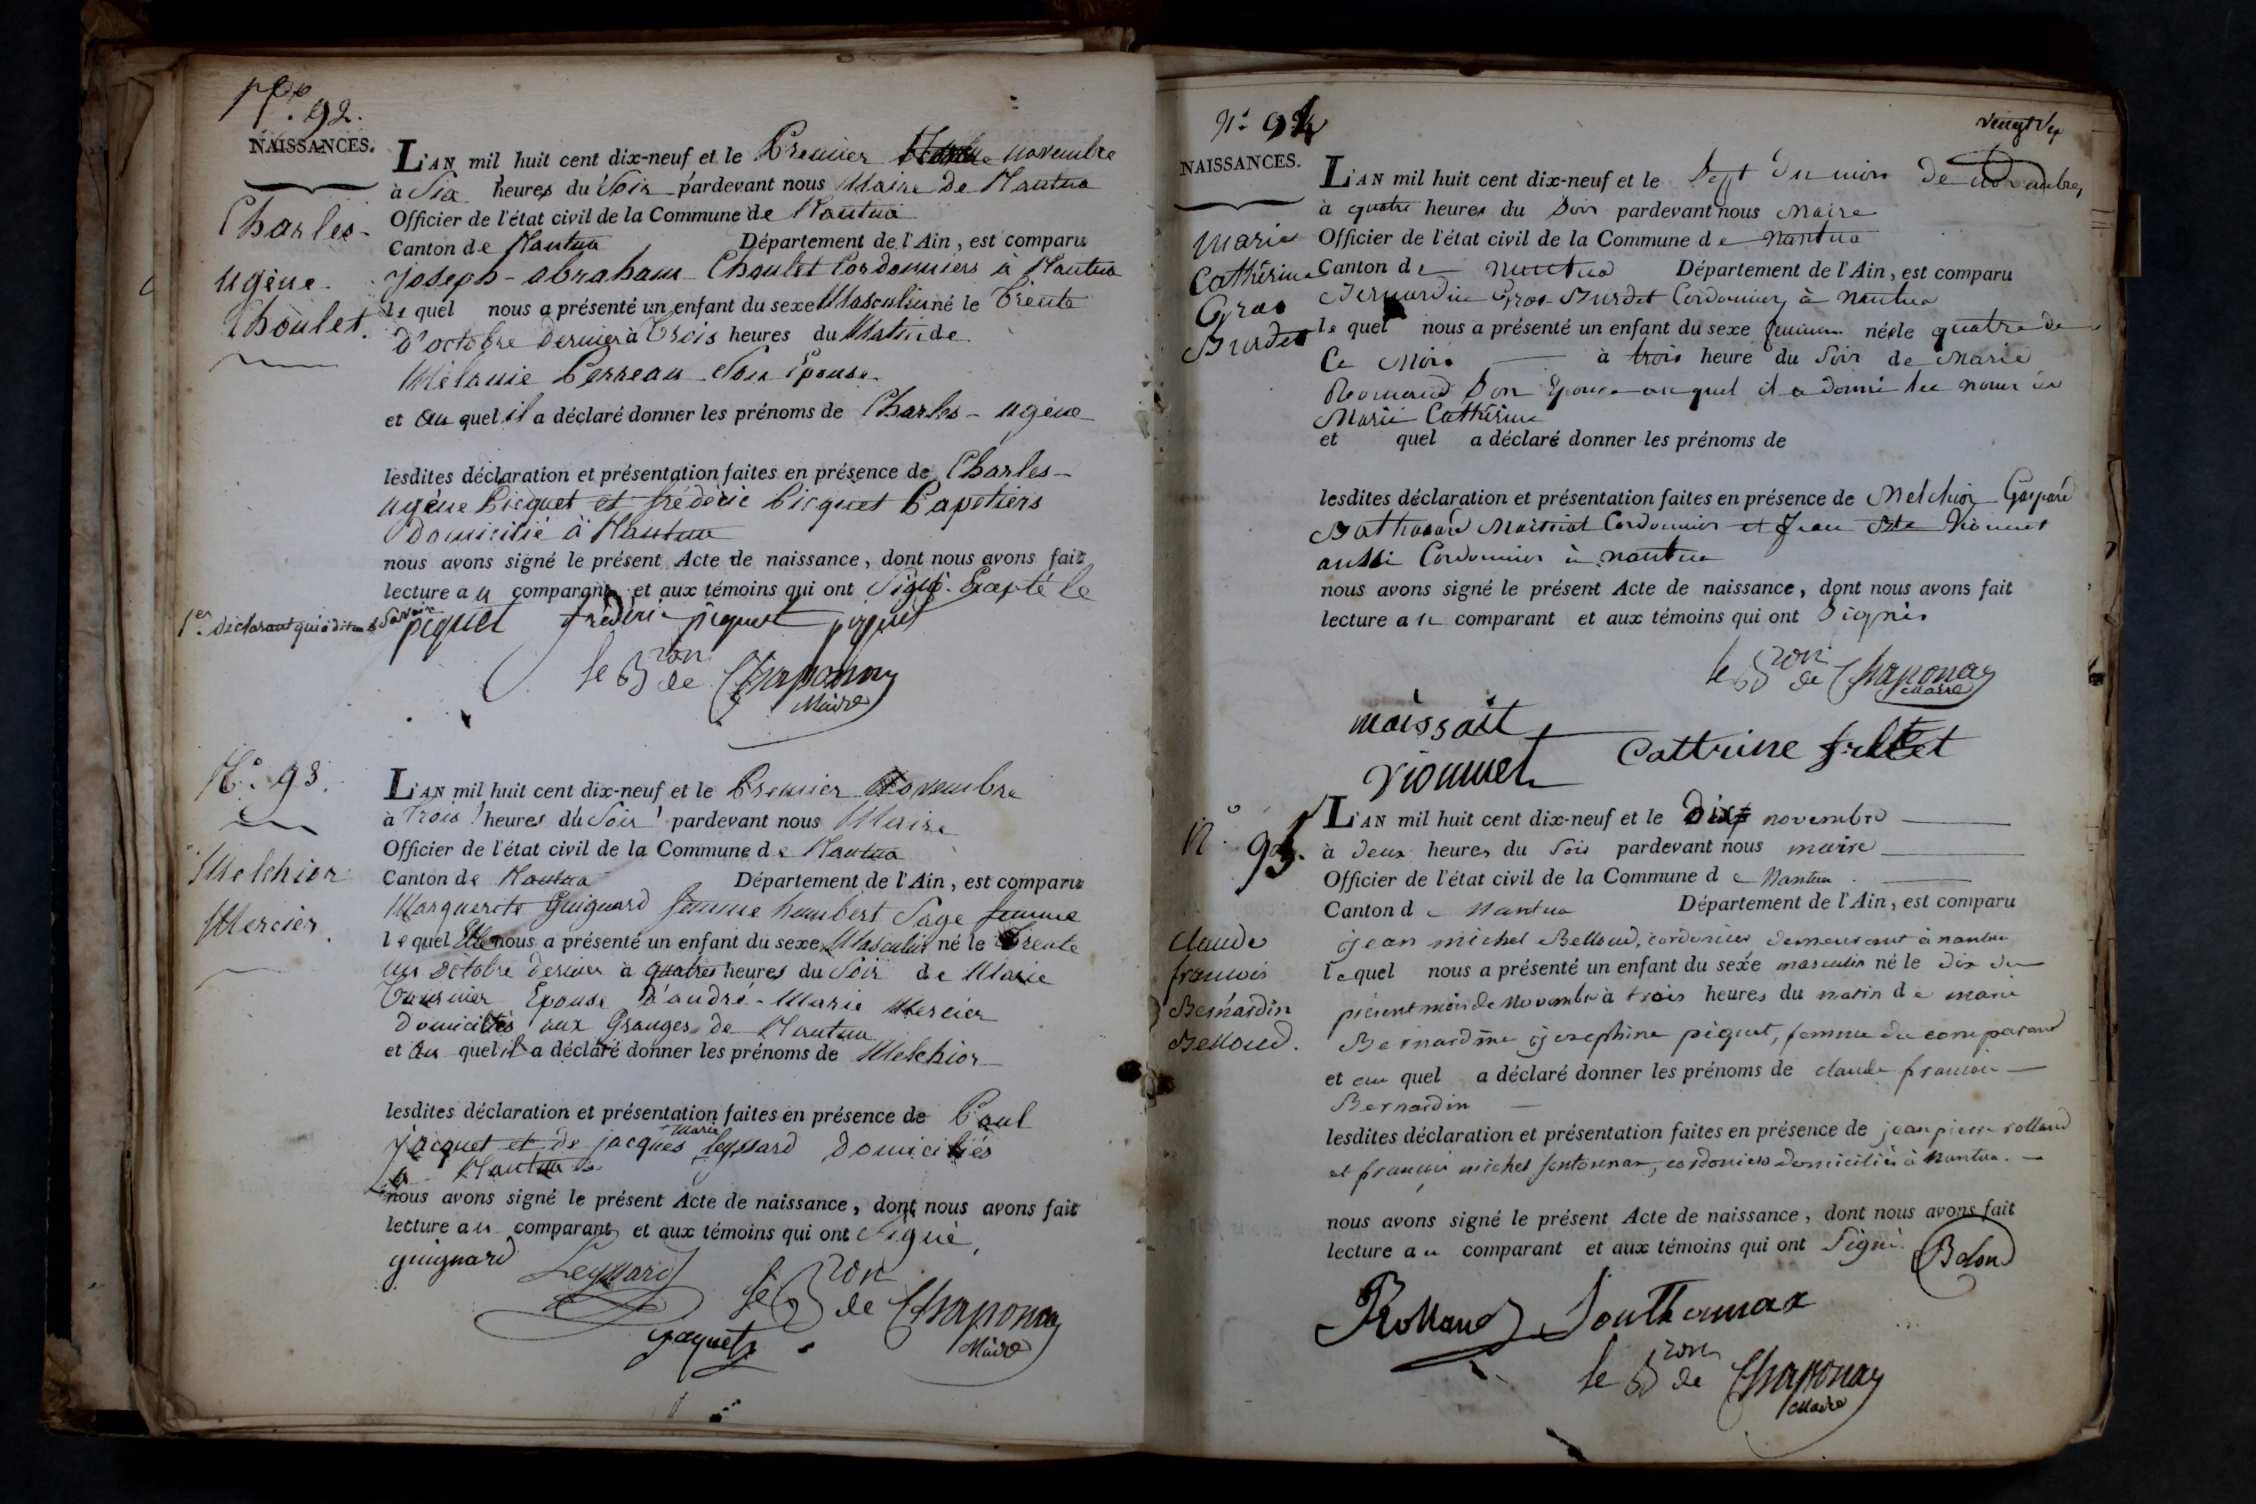 N.º 92.
NAISSANCES.
Charles-
ugène
Choulet.
L'AN mil huit cent dix-neuf et le Premier novembre
à Six heures du Soir pardevant nous Maire De Nantua
Officier de l'état civil de la Commune de Nantua
Canton de Nantua Département de l'Ain, est comparu
Joseph-abraham Choulet Cordonniers à Nantua
le quel nous a présenté un enfant du sexe Masculin né le Trente
D'octobre Dernier à Trois heures du Matin de
Mélanie Perreau Son Epouse
et au quel il a déclaré donner les prénoms de Charles-ugène
lesdites déclaration et présentation faites en présence de Charles-
ugène Picquet et frédéric Picquet Papetiers
Domicilié à Nantua
nous avons signé le présent Acte de naissance, dont nous avons fait
lecture au comparant et aux témoins qui ont Signé. Excepté le
1er déclarant qui a dit ne Savoir
piquet frédéric piquet piquet
le Bron de Chaponay
Maire
N.º 93.
Melchior
Mercier.
L'AN mil huit cent dix-neuf et le Premier Novembre
à Trois heures du Soir pardevant nous Maire
Officier de l'état civil de la Commune de Nantua
Canton de Nantua Département de l'Ain, est comparu
Marguerite Guignard femme humbert Sage femme
le quel Elle nous a présenté un enfant du sexe Masculin né le Trente
un octobre Dernier à quatres heures du Soir de Marie
Tournier Epouse D'andré-Marie Mercier
Domiciliés aux Granges de Nantua
et au quel il a déclaré donner les prénoms de Melchior
lesdites déclaration et présentation faites en présence de Paul
jacquet et de jacques Marie Leyssard Domiciliés
à Nantua
nous avons signé le présent Acte de naissance, dont nous avons fait
lecture au comparant et aux témoins qui ont Signé,
guignard Leyssard
le Bron de Chaponay
jaquet Maire
vingt Six
N.º 94
NAISSANCES.
Marie
Cathérine
Gras
Burdet
L'AN mil huit cent dix-neuf et le Sept Du mois De Novembre,
à quatre heures du Soir pardevant nous Maire
Officier de l'état civil de la Commune de Nantua
Canton de Nantua Département de l'Ain, est comparu
Bernardin Gras Burdet Cordonnier à Nantua
le quel nous a présenté un enfant du sexe feminin né le quatre de
Ce Mois à trois heure du Soir de Marie
Romand Son Epouse auquel il a donné les noms de
Marie Cathérine
et quel a déclaré donner les prénoms de
lesdites déclaration et présentation faites en présence de Melchior Gaspard
Balthasard Maissiat Cordonnier et Jean Bte Vionnet
aussi Cordonnier à Nantua
nous avons signé le présent Acte de naissance, dont nous avons fait
lecture au comparant et aux témoins qui ont Signés
le Bron de Chaponay
Maire
maissait
Vionnet Cattrine
N.º 95.
Claude
francois
Bernardin
Belloud.
L'AN mil huit cent dix-neuf et le Dix novembre
à Deux heures du Soir pardevant nous maire
Officier de l'état civil de la Commune de Nantua
Canton de Nantua Département de l'Ain, est comparu
jean michel Belloud, cordonier demeurant à nantua
lequel nous a présenté un enfant du sexe masculin né le dix du
présent mois de Novembre à trois heures du matin de marie
Bernardine josephine piquet, femme du comparant
et au quel a déclaré donner les prénoms de claude francois
Bernardin
lesdites déclaration et présentation faites en présence de jean pierre rolland
et francois michel sontonnax, cordoniers domiciliés à Nantua.
nous avons signé le présent Acte de naissance, dont nous avons fait
lecture au comparant et aux témoins qui ont Signé.
Beloud
Rolland Sonthonnax
le Bron de Chaponay
Maire